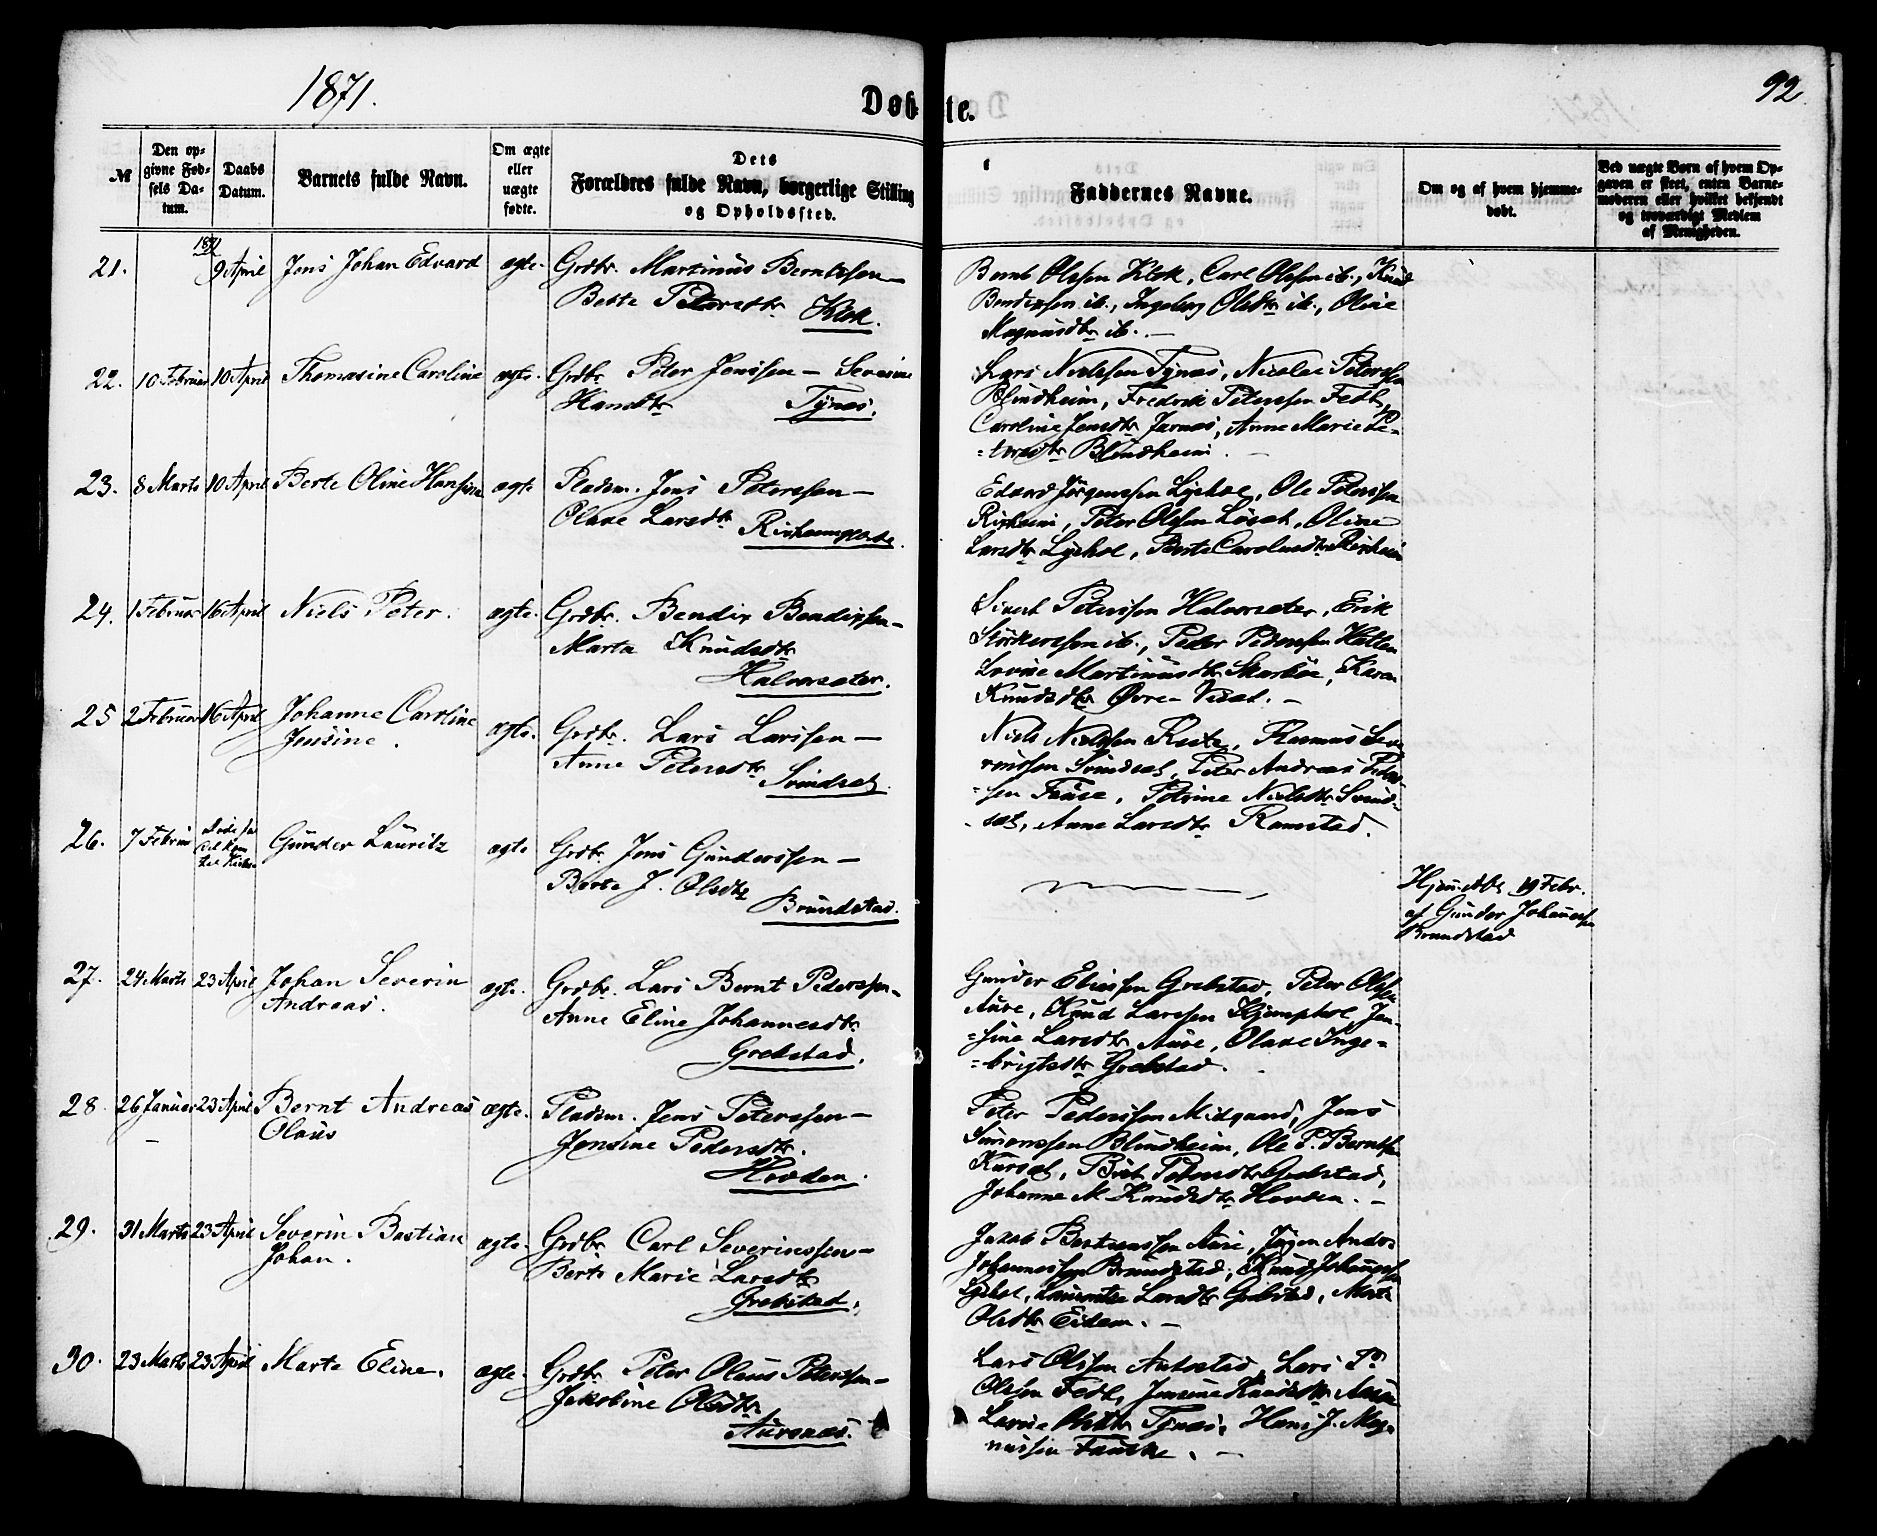 1871.
Døbte.
92
№
Den opgivne Fødsels Datum.
Daabs Datum.
Barnets fulde Navn.
Om ægte eller uægte fødte.
Dets Forældres fulde Navn, borgerlige Stilling og Opholdssted.
Faddernes Navne.
Om og af hvem hjemmedøbt.
Ved uægte Børn af hvem Opgaven er skeet, enten Barnemoderen eller hvilket bekjendt og troværdigt Medlem af Menigheden.
21.
1871
9 April
Jens Johan Edvard
ægte.
Grdbr. Martinus Berntssen —
Berte Petersdtr Klok.
Bernt Olssen Klok, Carl Olssen ib., Knud
Bendixsen ib., Ingeborg Olsdtr ib., Oline
Magnusdtr ib. —
22.
10 Februar
10 April
Thomasine Caroline
ægte.
Grdbr Peter Jenssen — Severine
Hansdtr Tynes.
Lars Nielssen Tynes, Nicolai Peterssen
Blindheim, Fredrik Peterssen Fedt,
Caroline Jensdtr Tynes, Anne Marie Pe-
-tersdtr Blindheim. —
23.
8 Marts
10 April
Berte Oline Hansine
ægte
Pladsm. Jens Peterssen —
Olave Larsdtr Rixheimgjerde.
Edvard Jørgenssen Lyshol, Ole Peterssen
Rixheim, Peter Olssen Løset, Oline
Larsdtr Lyshol, Berte Carolusdtr Rixheim
24.
1 Februar
16 April
Niels Peter.
ægte.
Grdbr. Bendix Bendixsen —
Marta Knudsdtr
Halvorsæter.
Sivert Peterssen Halvorsæter, Erik
Størkerssen ib., Peder Pederssen Hatlen
Lovise Martinusdtr Skarbøe, Karen
Knudsdtr Øvre-Væst. —
25
2 Februar
16 April
Johanne Caroline
Jensine.
ægte.
Grdbr. Lars Larssen —
Anne Petersdtr
Svindset
Niels Nielssen Reite, Rasmus Seve
rinssen Svindset, Peter Andreas Peter
-sen Fause, Petrine Nielsdtr Svind-
-set, Anne Larsdtr Ramstad.
26.
7 Februar
Gunder Lauritz
ægte
Grdbr. Jens Gunderssen —
Berte J. Olsdtr
Brundstad.
Hjemdbt 19 Febr.
af Gunder Johannessen
Brundstad
27.
24 Marts
23 April
Johan Severin
Andreas.
ægte.
Grdbr. Lars Bernt Pederssen —
Anne Eline Johannesdtr
Grebstad.
Gunder Eliassen Grebstad, Peter Olssen
Aure, Knud Larssen Kjemphol, Jen-
-sine Larsdtr Aure, Olave Inge-
-brigtsdtr Grebstad.
28.
26 Januar
23 April
Bernt Andreas
Olaus
ægte.
Pladsm. Jens Peterssen —
Jensine Pedersdtr.
Hovden.
Peter Pederssen Midgaard, Jens
Simonssen Blindheim, Ole P. Berntssen
Kurset, Birit Petersdtr Grebstad,
Johanne M. Knudsdtr Hovden. —
29.
31 Marts
23 April
Severin Bastian
Johan.
ægte.
Grdbr Carl Severinssen —
Berte Marie Larsdtr
Grebstad.
Jakob Bastianssen Aure, Jørgen Andr.
Johannessen Brundstad, Knud Johannessen
Lyshol, Lauentse Larsdtr Grebstad, Marte
Olsdtr Eidem. —
30.
23 Marts
23 April
Marte Eline.
ægte.
Grdbr Peter Olaus Peterssen —
Jakobine Olsdtr
Aursnes.
Lars Olssen Aurstad, Lars P.
Olssen Fedt, Jensine Knudsdtr Aursn
Lavise Olsdtr Tynes, Hans J. Mag-
nussen Fauske. —